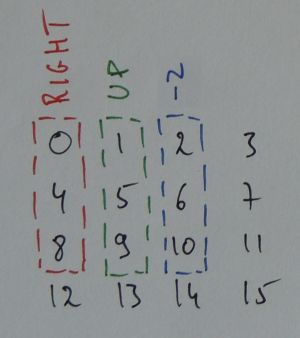 RIGHT UP -2
0 1 2 3
4 5 6 7
8 9 10 11
12 13 14 15